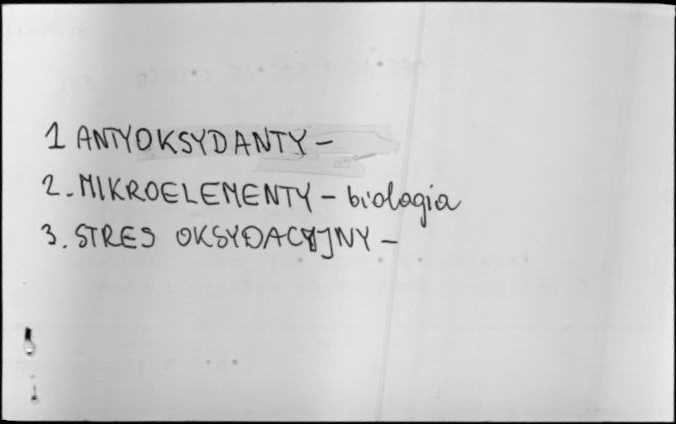 1 ANTYOKSYDANTY -
2. MIKROELEMENTY - biologia
3. STRES OKSYDACYJNY -